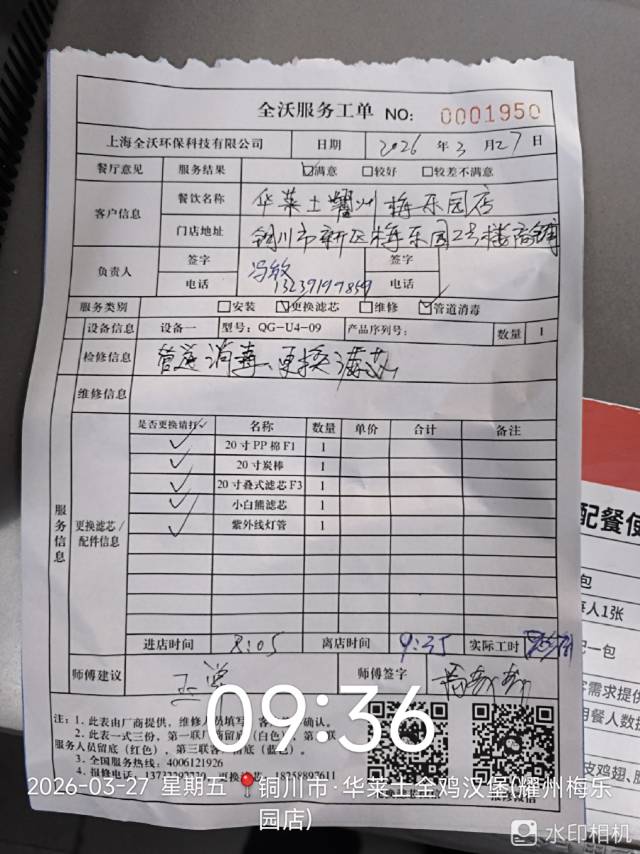 全沃服务工单 NO: 0001950
上海全沃环保科技有限公司 日期 2026 年 3 月 27 日
餐厅意见 服务结果 ☑满意 ☐较好 ☐较差不满意
客户信息 餐饮名称 华莱士耀州梅乐园店
门店地址 铜川市新区梅乐园2号楼商铺
负责人 签字 冯敏 签字
电话 电话
服务类别 ☐安装 ☑更换滤芯 ☐维修 ☑管道消毒
设备信息 设备一 型号: QG-U4-09 产品序列号: 数量 1
检修信息 管道消毒、更换滤芯
维修信息
服务信息 更换滤芯/配件信息
是否更换请打✓ 名称 数量 单价 合计 备注
✓ 20寸PP棉F1 1
✓ 20寸炭棒 1
✓ 20寸叠式滤芯F3 1
✓ 小白熊滤芯 1
✓ 紫外线灯管 1
进店时间 8:05 离店时间 9:35 实际工时
师傅建议 正常 师傅签字
09:36
注: 1. 此表由厂商提供, 维修人员填写, 客 确认。
2. 此表一式三份, 第一联厂 留底(白色), 第 联
服务人员留底(红色), 第三联客 留底(蓝色)。
3. 全国服务热线: 4006121926
4. 报修电话: 更换
2026-03-27 星期五 铜川市·华莱士全鸡汉堡(耀州梅乐
园店)
水印相机
配餐使
包
每人1张
一包
客需求提供
用餐人数
皮鸡翅、